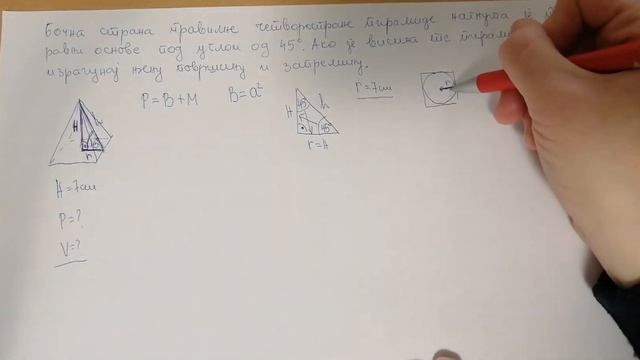 Бочна страна правилне четворостране пирамиде нагнута је
равни основе под углом од 45°. Ако је висина те
израчунај њену површину и запремину.
P=B+M
B=a²
H=7cm
P=?
V=?
H
r
45°
H
h
45°
45°
r=H
r=7cm
r